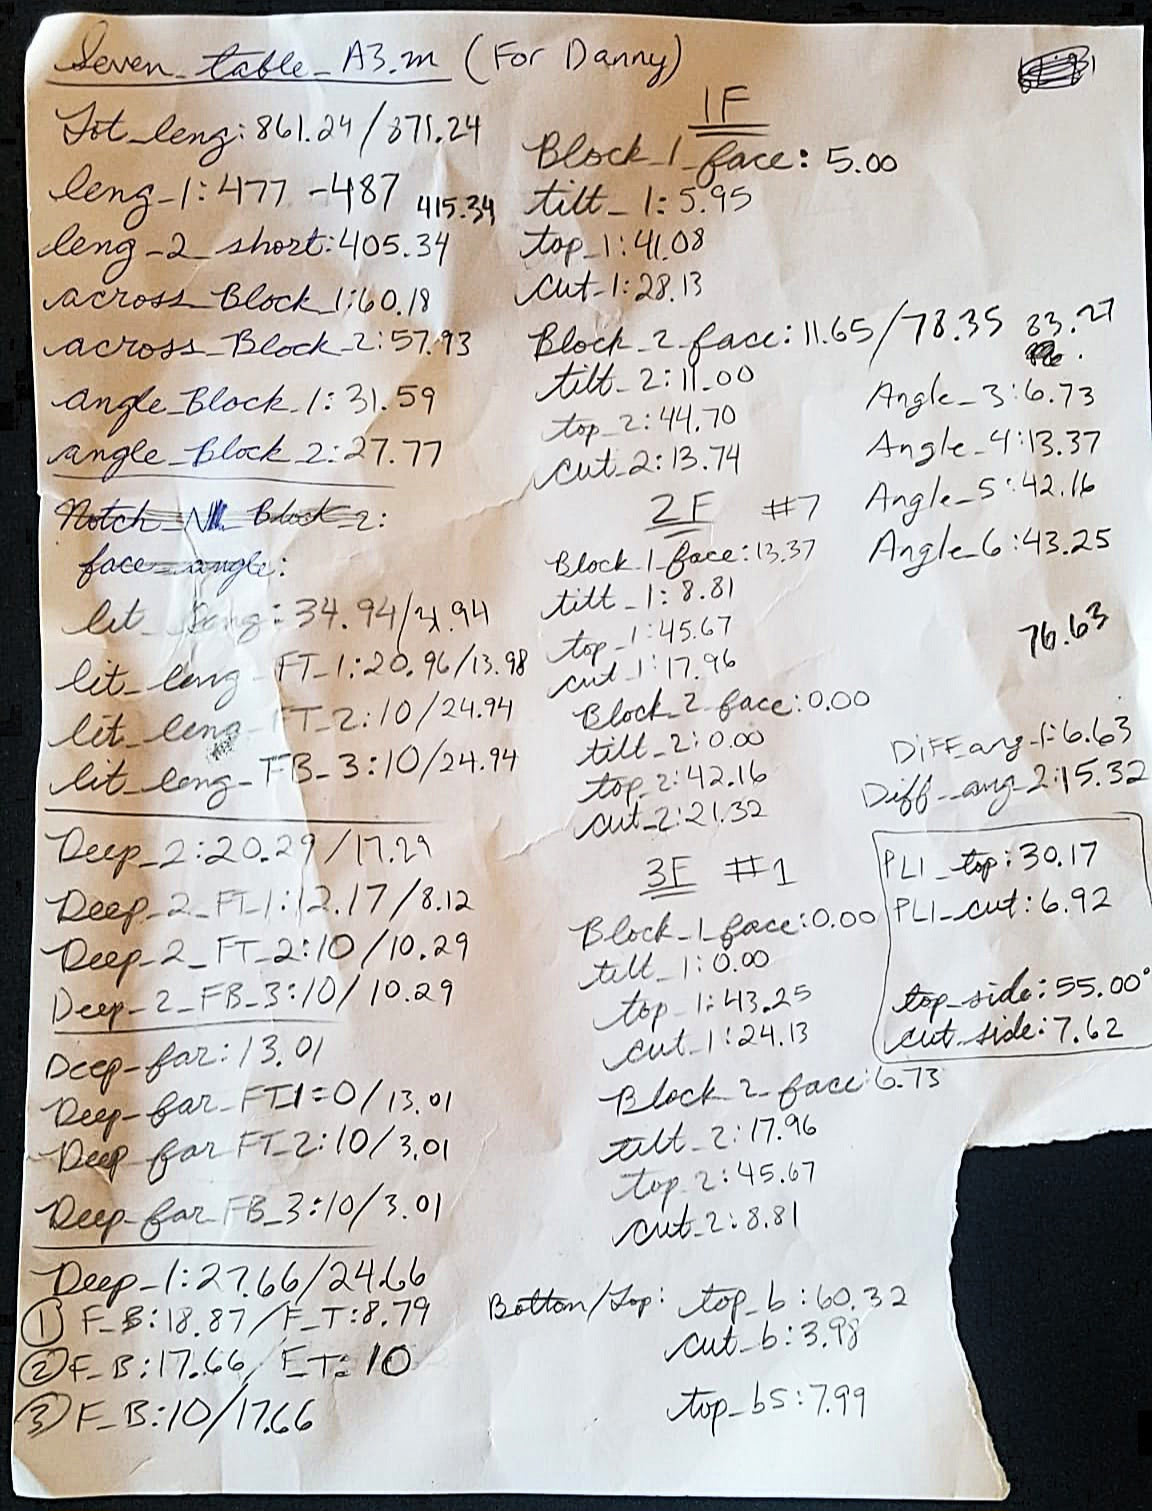 Seven_table_A3.m (For Danny)
Tot_leng: 861.24/871.24
leng_1: 477 - 487
415.34
leng_2_short: 405.34
across_Block_1: 60.18
across_Block_2: 57.93
angle_Block_1: 31.59
angle_block_2: 27.77
Notch Block_2:
face_angle:
lit_leng: 34.94/31.94
lit_leng_FT_1: 20.96/13.98
lit_leng_FT_2: 10/24.94
lit_leng_FB_3: 10/24.94
Deep_2: 20.29/17.29
Deep_2_FT_1: 12.17/8.12
Deep_2_FT_2: 10/10.29
Deep_2_FB_3: 10/10.29
Deep_far: 13.01
Deep_far_FT1=0/13.01
Deep_far FT_2: 10/3.01
Deep_far_FB_3: 10/3.01
Deep_1: 27.66/24.66
① F_B: 18.87/F_T: 8.79
② F_B: 17.66/F_T: 10
③ F_B: 10/17.66
1F
Block_1_face: 5.00
tilt_1: 5.95
top_1: 41.08
cut_1: 28.13
Block_2_face: 11.65/78.35 83.27
tilt_2: 11.00
top_2: 44.70
cut_2: 13.74
2F #7
Block_1_face: 13.37
tilt_1: 8.81
top_1: 45.67
cut_1: 17.96
Block_2_face: 0.00
tilt_2: 0.00
top_2: 42.16
cut_2: 21.32
3F #1
Block_1_face: 0.00
tilt_1: 0.00
top_1: 43.25
cut_1: 24.13
Block 2_face: 6.73
tilt_2: 17.96
top_2: 45.67
cut_2: 8.81
Bottom/Top: top_b: 60.32
cut_b: 3.98
top_bs: 7.99
Angle_3: 6.73
Angle_4: 13.37
Angle_5: 42.16
Angle_6: 43.25
76.63
DiFF_ang_1: 6.63
Diff_ang_2: 15.32
PL1_top: 30.17
PL1_cut: 6.92
top_side: 55.00°
cut_side: 7.62